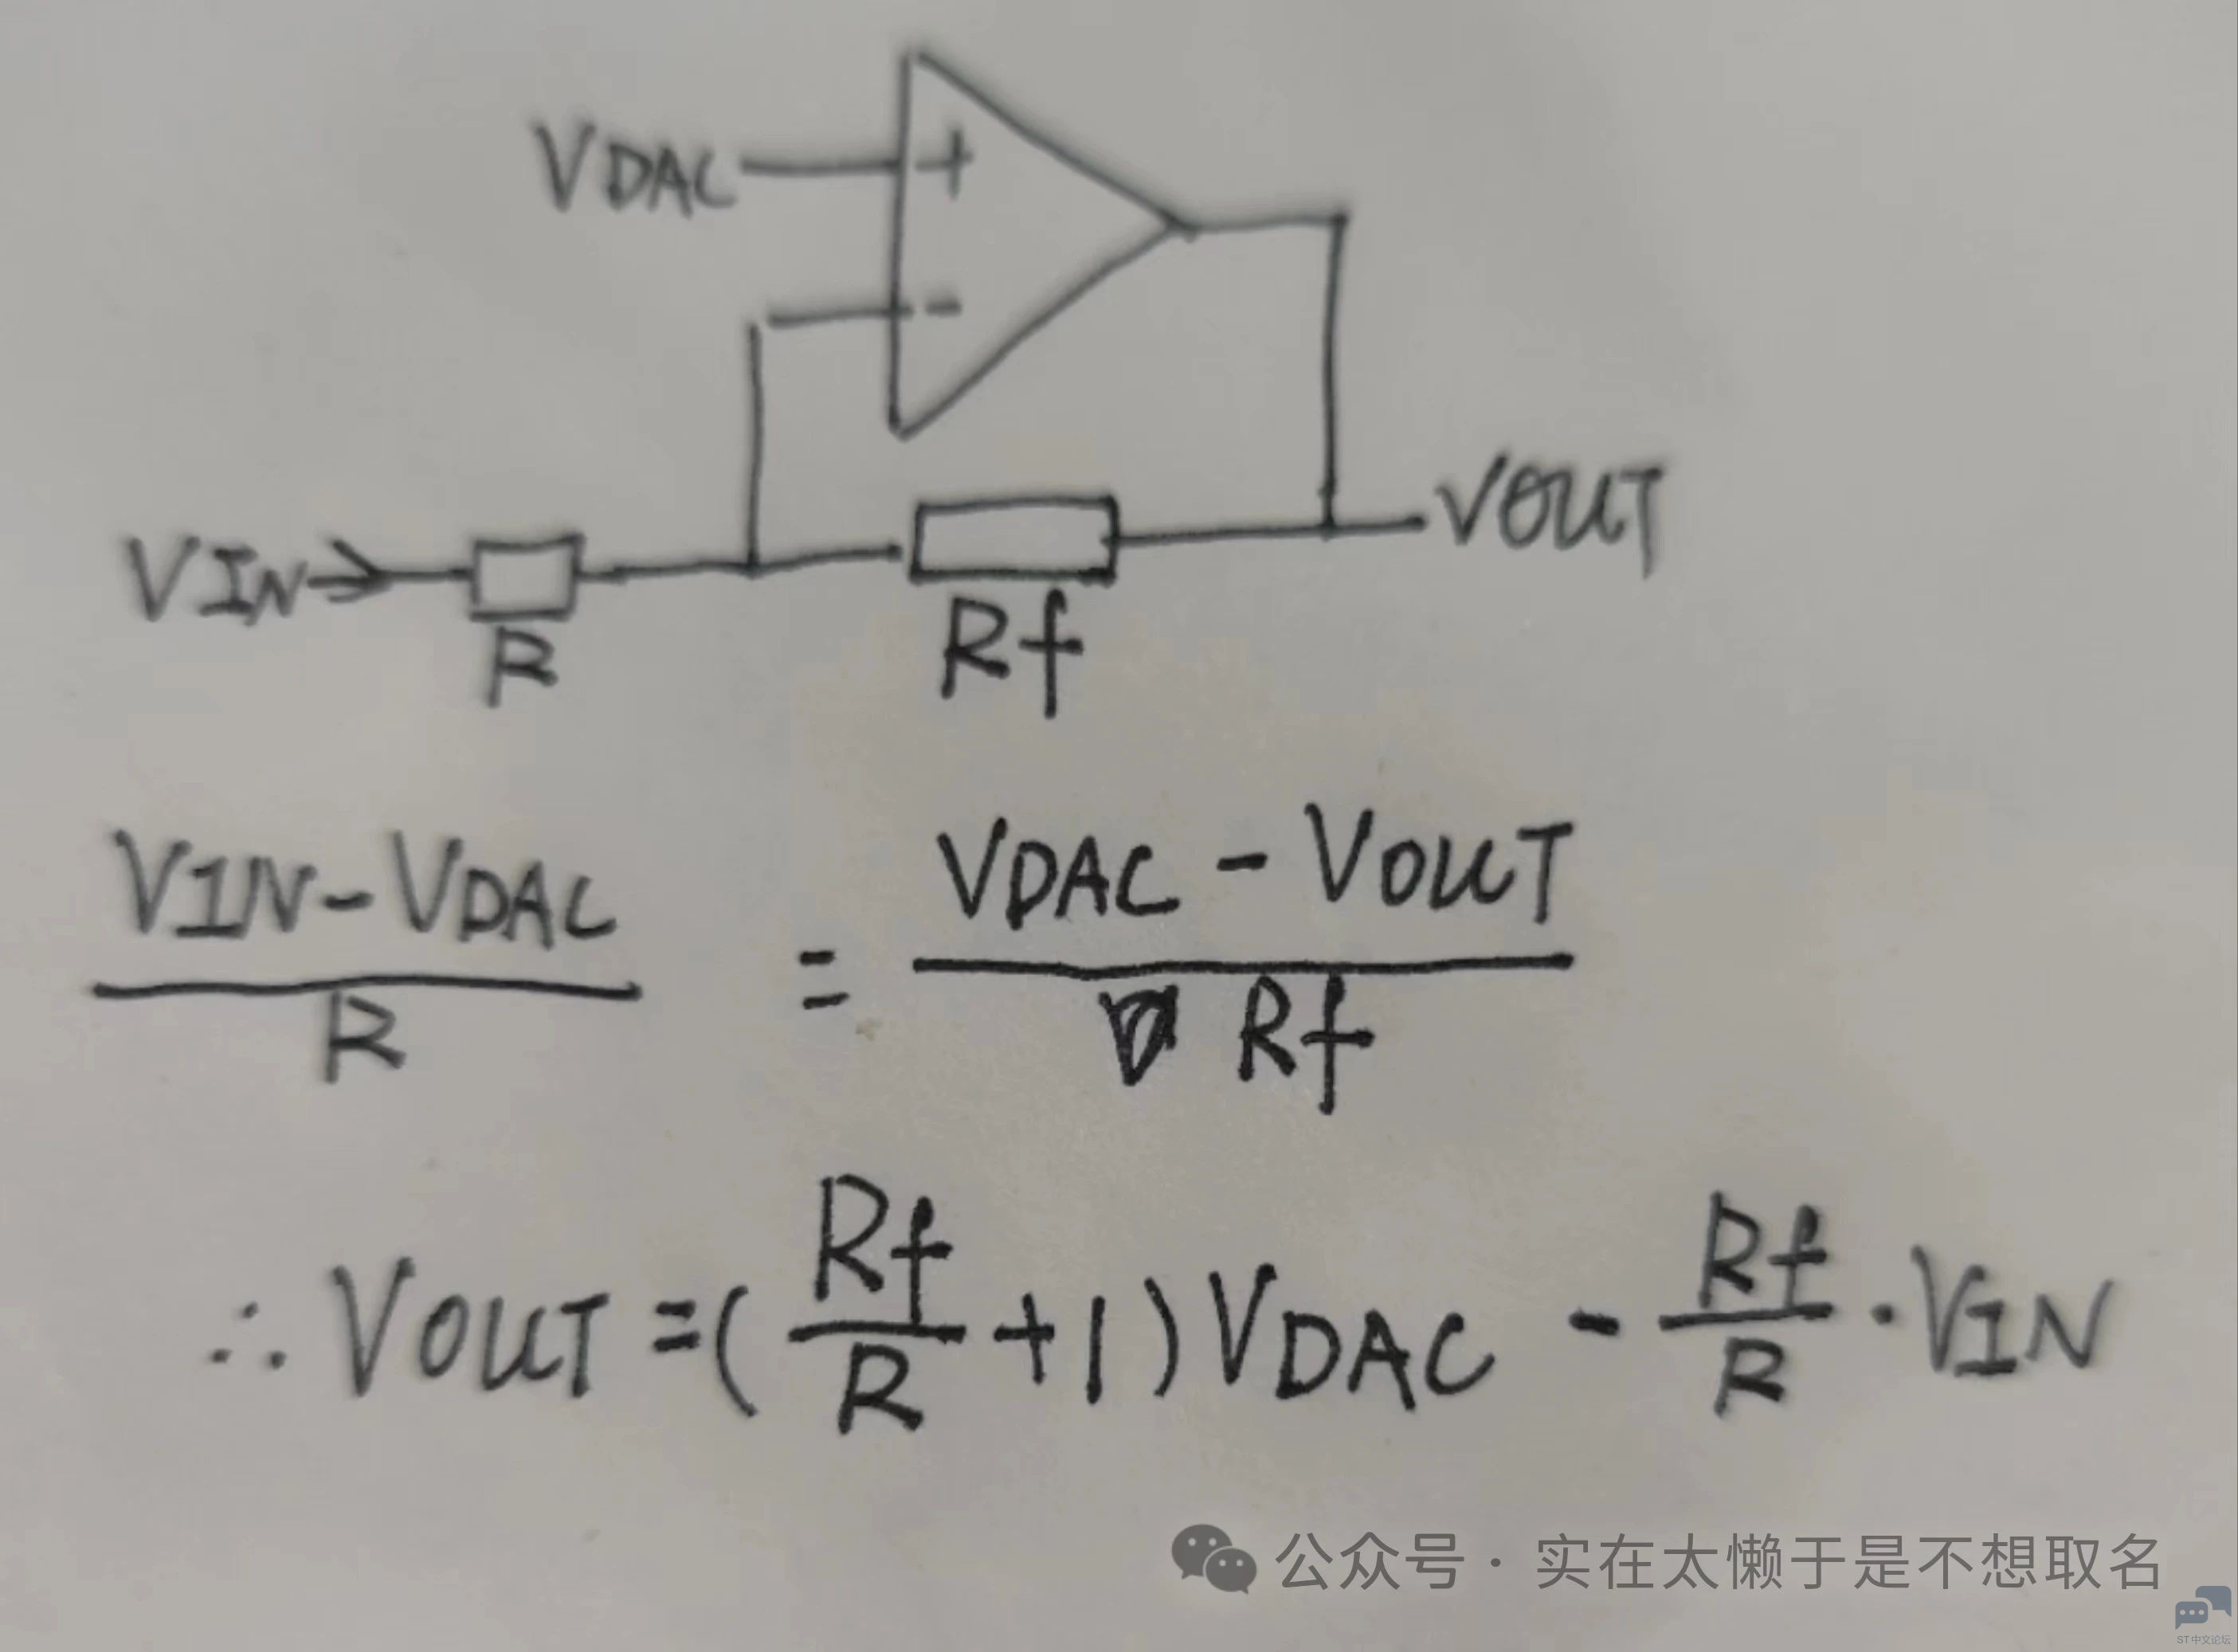 VDAC
+
-
VIN
R
Rf
VOUT
VIN-VDAC
R
=
VDAC - VOUT
Rf
∴ VOUT = (Rf/R +1) VDAC - Rf/R · VIN
公众号 · 实在太懒于是不想取名
ST中文论坛